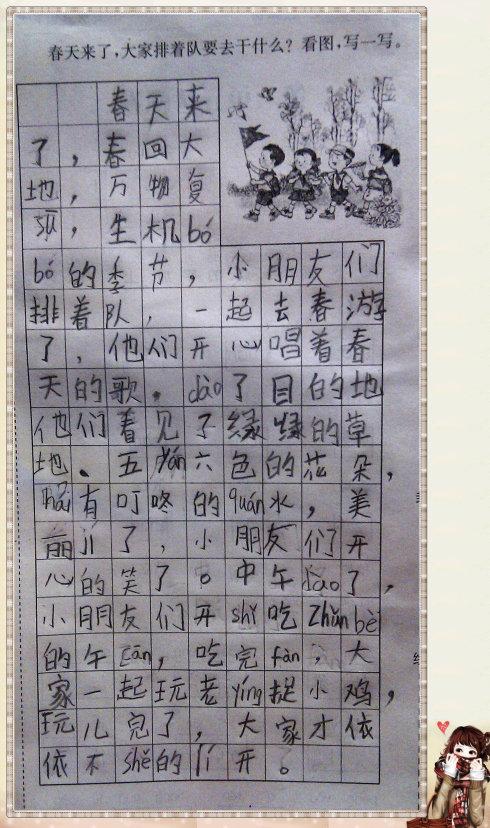 春天来了，大家排着队要去干什么？看图，写一写。
春天来
了，春回大
地，万物复
sū，生机bó
bó的季节，小朋友们
排着队，一起去春游
了，他们开心唱着春
天的歌。dào了目的地
他们看见了绿绿的草
地、五yán六色的花朵，
hái有叮咚的quán水，美
丽jí了，小朋友们开
心的笑了。中午dao了，
小朋友们开shǐ吃Zhǔnbèi
的午cān，吃完fàn，大
家一起玩老yīng捉小鸡，
玩儿完了，大家才依
依不shě的lí开。